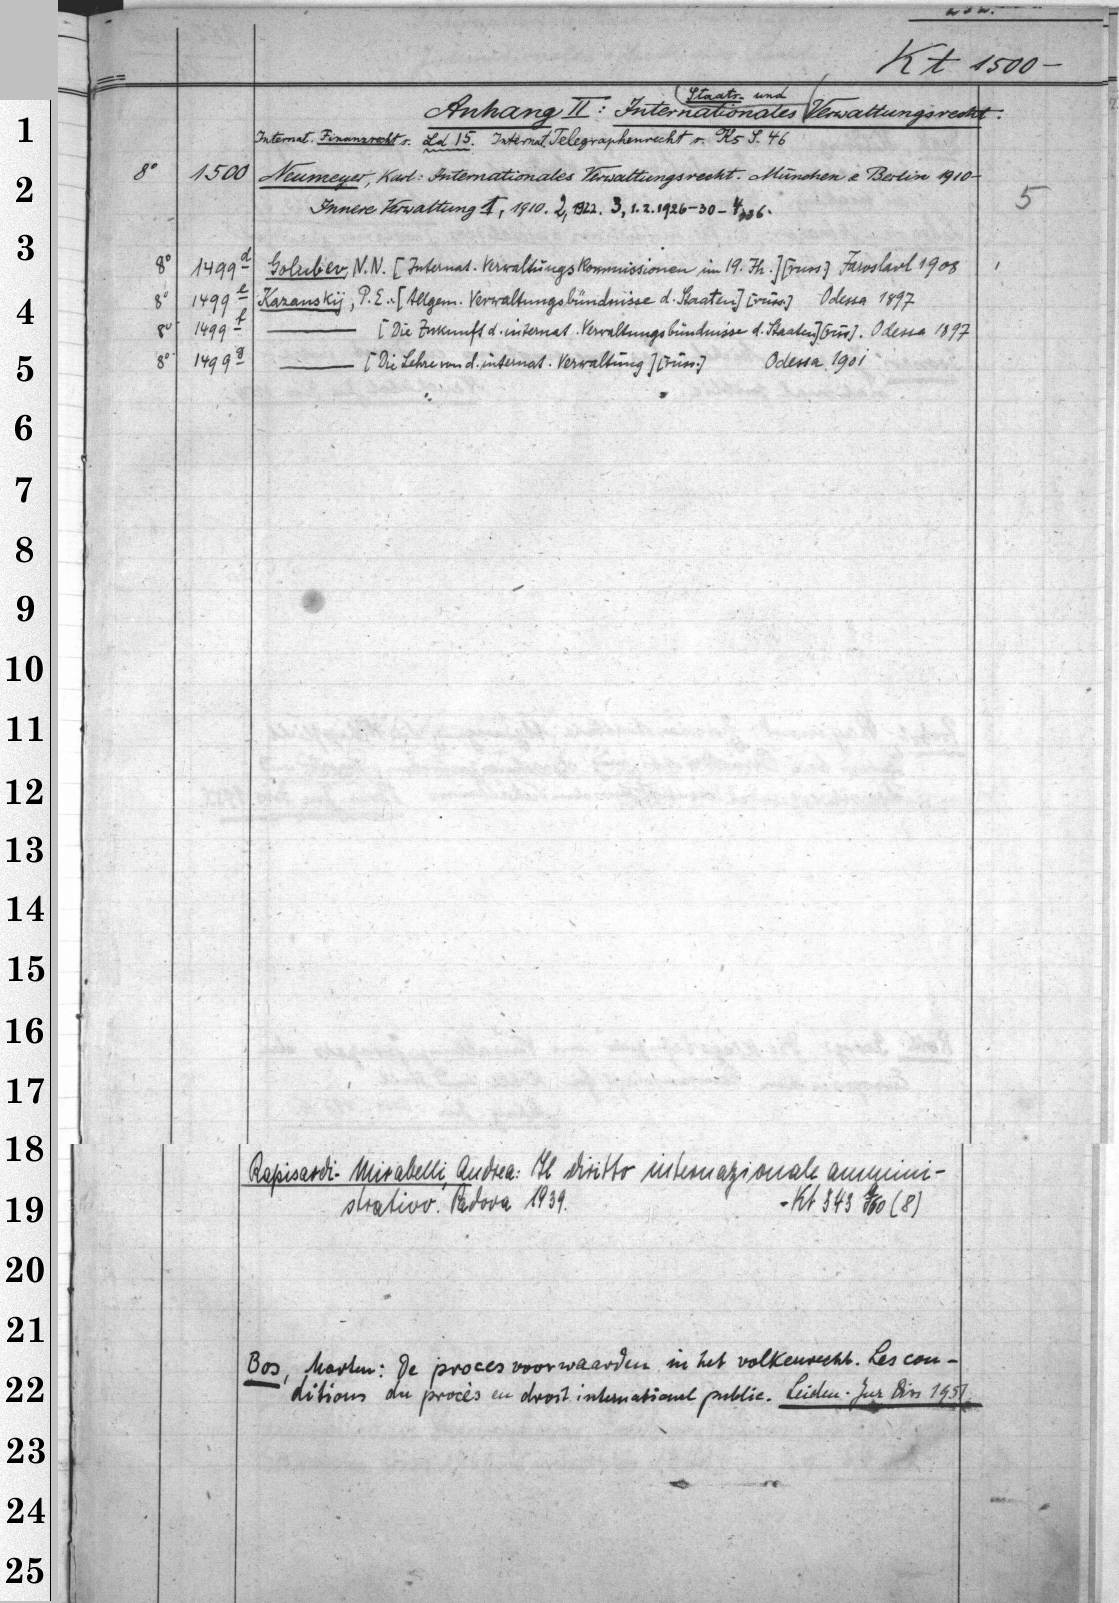 Kt 1500-
(Staats- und
Anhang II: Internationales (Verwaltungsrecht.
Internat. Finanzrecht s. Ld 15. Internat. Telegraphenrecht s. Ks S. 46
1
8° 1500 Neumeyer, Karl: Internationales Verwaltungsrecht. München & Berlin 1910-
2
Innere Verwaltung 1, 1910. 2, 1922. 3, 1.2. 1926-30 - 4, 1936.
5
3
8° 1499d Golubev, N.N. [Internat. Verwaltungskommissionen im 19. Jh.] [russ] Jaroslavl 1908
4
8° 1499e Kazanskij, P.E.: [Allgem. Verwaltungsbündnisse d. Staaten] [russ.] Odessa 1897
8° 1499f ——— [Die Zukunft d. internat. Verwaltungsbündnisse d. Staaten] [russ]. Odessa 1897
5
8° 1499g ——— [Die Lehre von d. internat. Verwaltung] [russ.] Odessa 1901
6
7
8
9
10
11
12
13
14
15
16
17
18
Rapisardi-Mirabelli, Andrea: Il diritto internazionale ammini-
19
strativo. Padova 1939. - Kt 343 (8)
20
21
Bos, Marten: De procesvoorwaarden in het volkenrecht. Les con-
22
ditions du procès en droit international public. Leiden. Jur Diss 1951
23
24
25